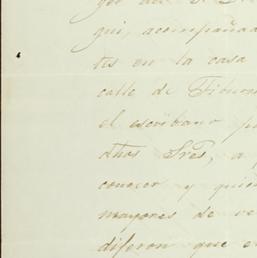 por del S. D
qui, acompañad
tes en la casa
calle de Tibur
el escribano p
dhos Sres, a
conocer y quie
mayores de ve
dijeron que e